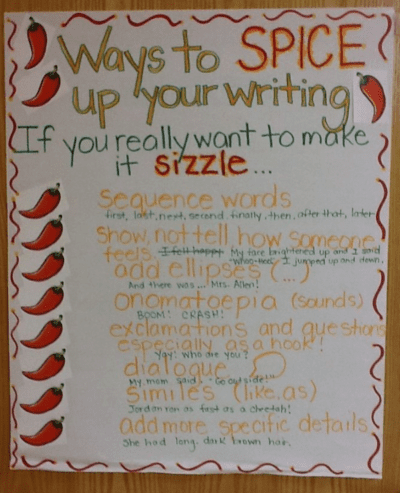 Ways to SPICE
up your writing
If you really want to make
it sizzle...
sequence words
first, last, next, second, finally, then, after that, later
show, not tell how someone
feels I felt happy. My face brightened up and I said
"Woo-Hoo!" I jumped up and down.
add ellipses (...)
And there was ... Mrs. Allen!
onomatopoeia (sounds)
BOOM! CRASH!
exclamations and questions
especially as a hook!
Yay! Who are you?
dialogue
My mom said, "Go outside!"
similes (like, as)
Jordan ran as fast as a cheetah!
add more specific details
She had long, dark brown hair.